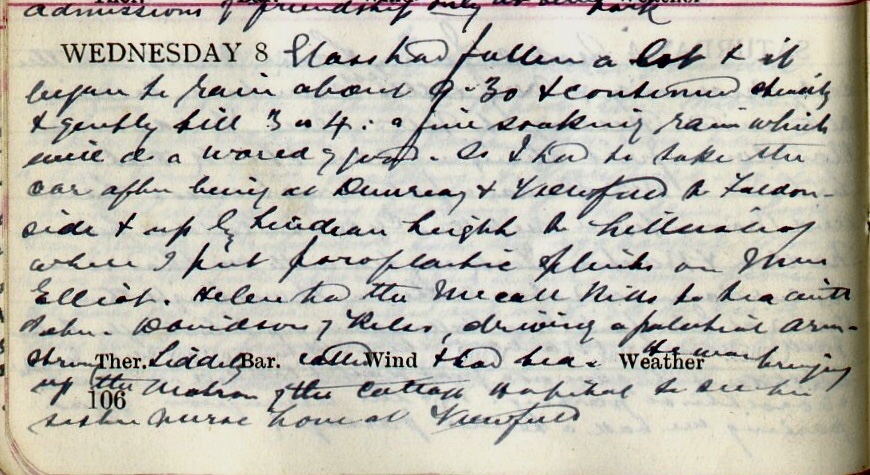 admissions of friendship only as being
WEDNESDAY 8 Glass had fallen a lot & it
began to rain about 9-30 & continued steadily
& gently till 3 or 4: a fine soaking rain which
will do a world of good. So I had to take the
car after being at & Viewfield to Faldon-
side & up by height to
where I put poroplastic splints on Miss
Elliot. Helen had the Mccall Hills to tea with
John. Davidson of Kelso, driving a palatial Arm-
strong Siddeley called & had tea. He was bringing
Ther. Bar. Wind Weather
up the Matron of the Cottage Hospital to see her
106
sister nurse at Viewfield